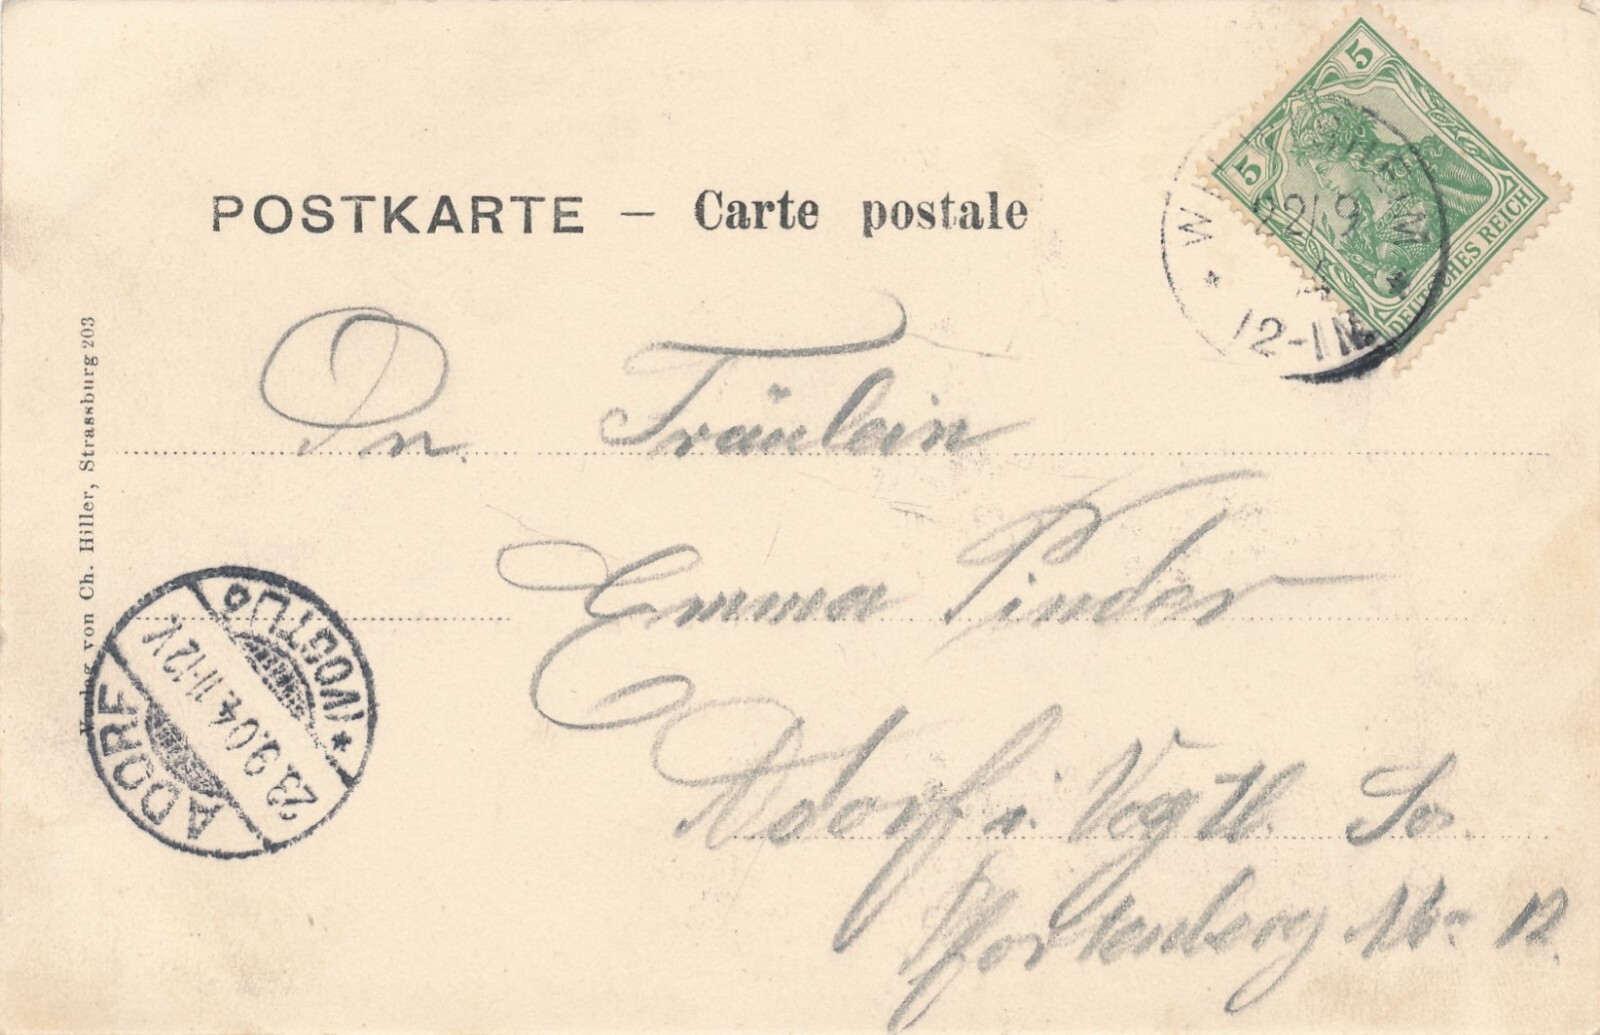 POSTKARTE – Carte postale
5
5
DEUTSCHES REICH
22/9
12-1N.
An Fräulein
Emma Pinder
Adorf i. Vogtl. Sa.
Pfortenberg No 12
Verlag von Ch. Hiller, Strassburg 203
ADORF
23.9.04.11-12V.
*(VOGTL.)